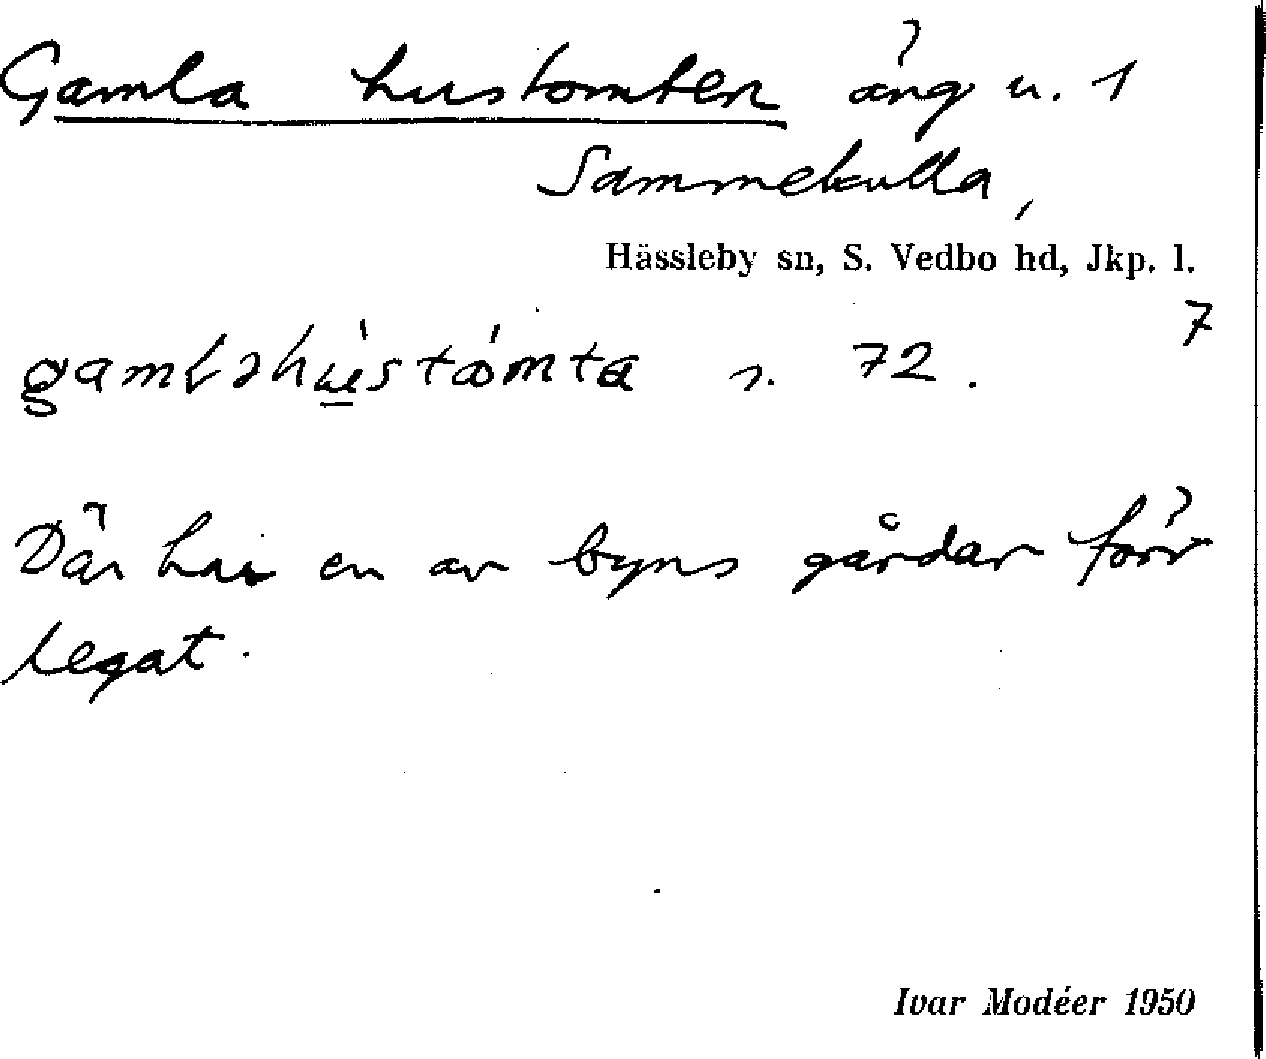 Gamla hustomten äng u. 1
Sammekulla,
Hässleby sn, S. Vedbo hd, Jkp. l.
7
gamləhùstómta n. 72.
Där har en av byns gårdar förr
legat.
Ivar Modéer 1950